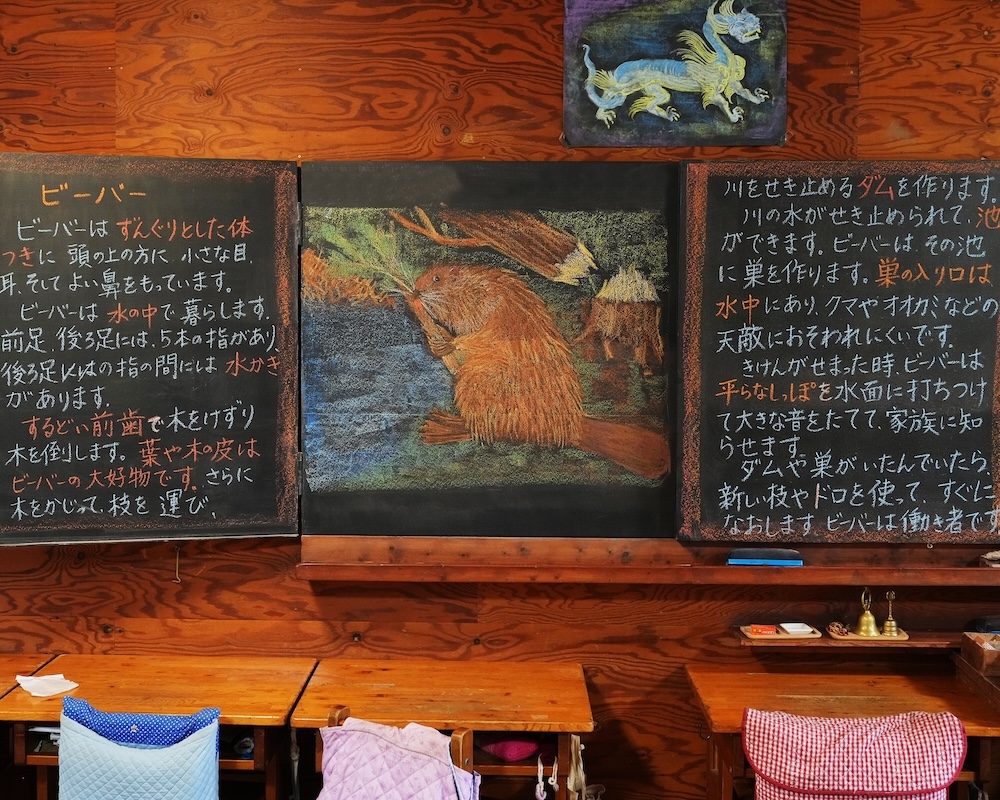 ビーバー
ビーバーは ずんぐりとした体
つきに 頭の上の方に、小さな目、
耳、そして よい鼻をもっています。
ビーバーは 水の中で 暮らします。
前足、後ろ足には、5本の指があり、
後ろ足の指の間には 水かき
があります。
するどい前歯で木をけずり
木を倒します。葉や木の皮は
ビーバーの 大好物です。さらに
木をかじって、枝を 運び、
川をせき止める ダムを 作ります。
川の水が せき止められて、池
ができます。ビーバーは、その池
に 巣を作ります。巣の入り口は、
水中にあり、クマやオオカミなどの
天敵におそわれにくいです。
きけんがせまった時、ビーバーは
平らなしっぽを水面に打ちつけ
て大きな音をたてて、家族に知
らせます。
ダムや 巣が いたんでいたら、
新しい枝や ドロを使って、すぐに
なおします。ビーバーは 働き者です